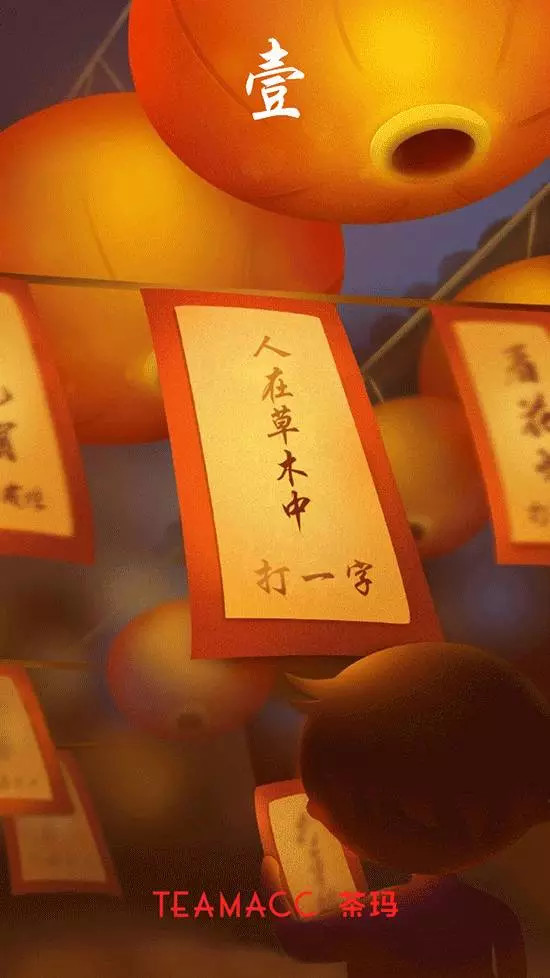 壹
人在草木中
打一字
TEAMACC 茶玛